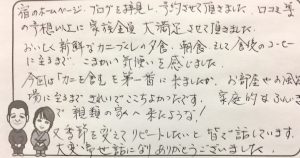 宿のホームページ・ブログを拝見し、予約させて頂きました。口コミ等
の予想以上に家族全員 大満足させて頂きました。
おいしく新鮮なカニづくしの夕食、朝食、そして食後のコーヒー
に至るまで、こまかい気使いを感じました。
今回は「カニを食を第一番に来ましたが、お部屋やお風呂
場に至るまできれいでここちよかったです。家庭的なふんいき
で親類の家へ来たような!
又季節を変えてリピートしたいと皆で話しています。
大変お世話になりありがとうございました。